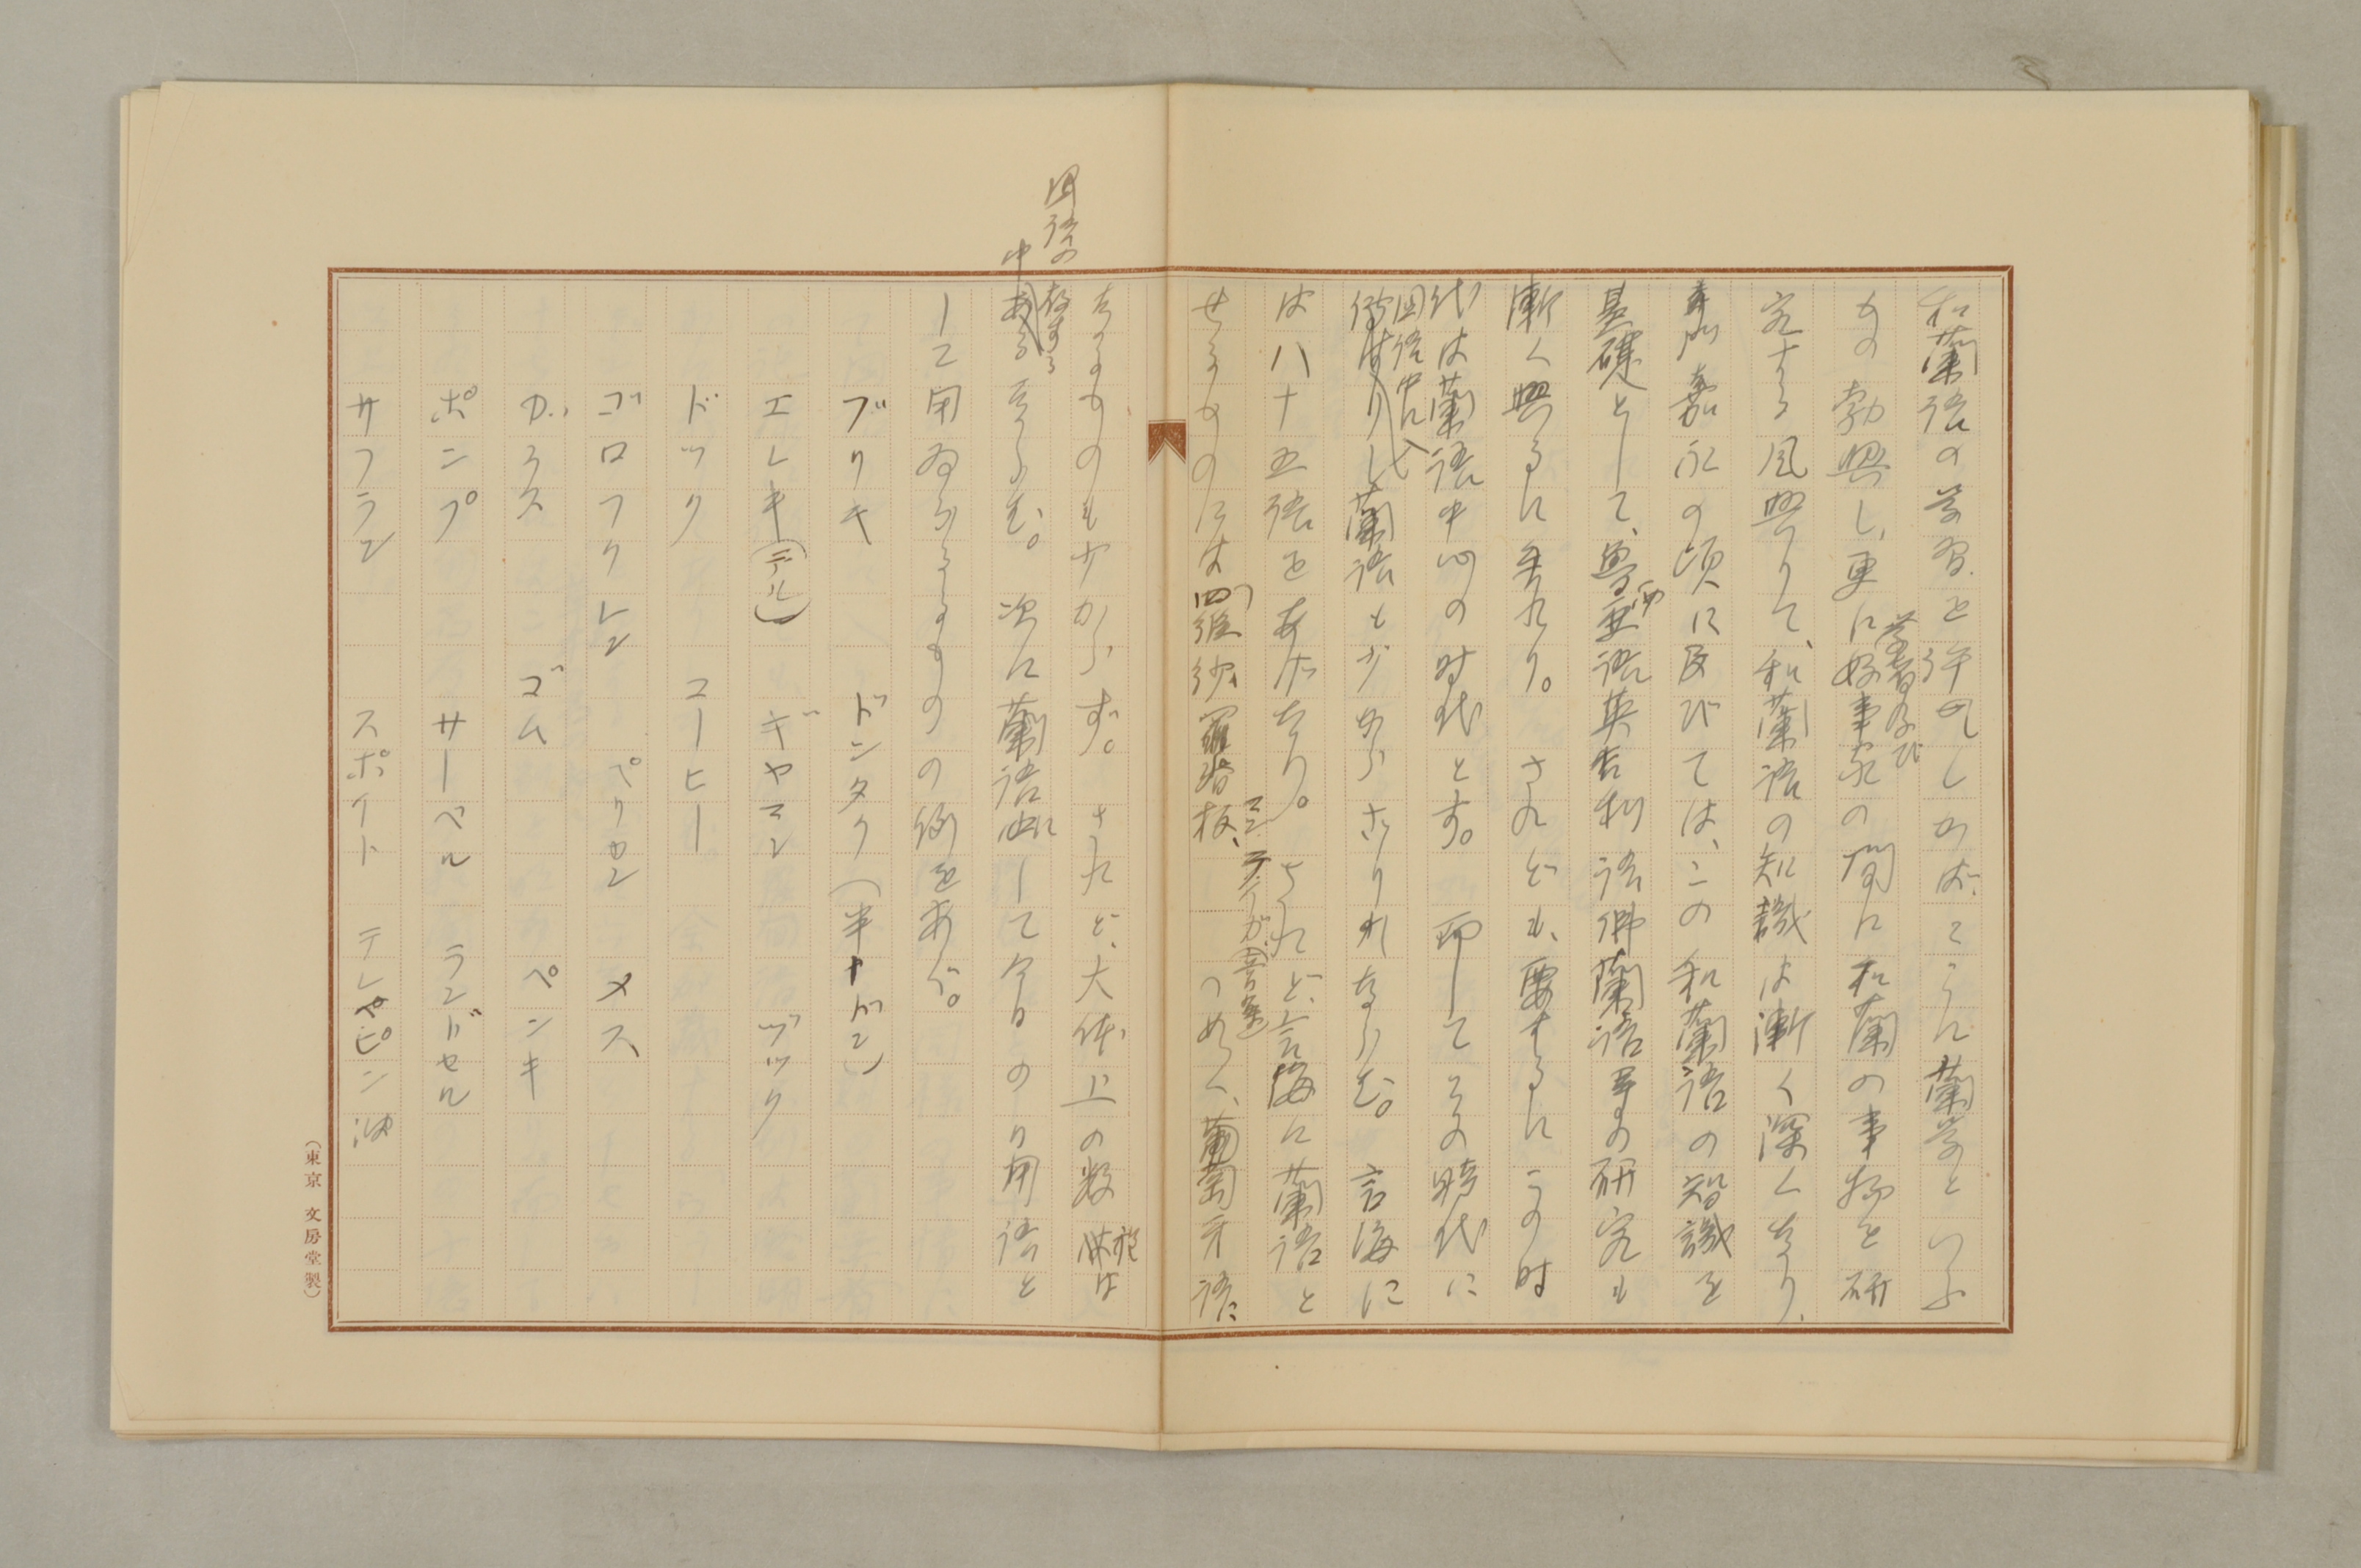 和蘭語の学習を許可しかば、こゝに蘭学といふ
もの勃興し、更に学者及び好事家の間に和蘭の事物を研
究する風興りて、和蘭語の知識は漸く深くなり、
嘉永の頃に及びては、この和蘭語の智識を
基礎として、魯西亜語英吉利語佛蘭語等の研究も
漸く興るに至れり。されども、要するにこの時
代は蘭語中心の時代とす。而してこの時代に
国語中に入りし蘭語も少からざりしならむ。言海に
は八十五語をあげたり。されど、言海に蘭語と
せるものには四羅紗羅背板、マンテイカ(豚膏)つめく、葡萄牙語に
なるものも少からず。されど、大体上の数は
国語の中 存する ならむ。次に蘭語にして今日のり用語と
して用ゐらるゝものの例をあぐ。
ブリキ ドンタク(半ドン)
エレキ(テル) ギヤマン ヅック
ドック コーヒー
ゴロフクレン ペリカン メス
ガラス ゴム ペンキ
ポンプ サーベル ランドセル
サフラン スポイト テレピン油
(東京 文房堂製)